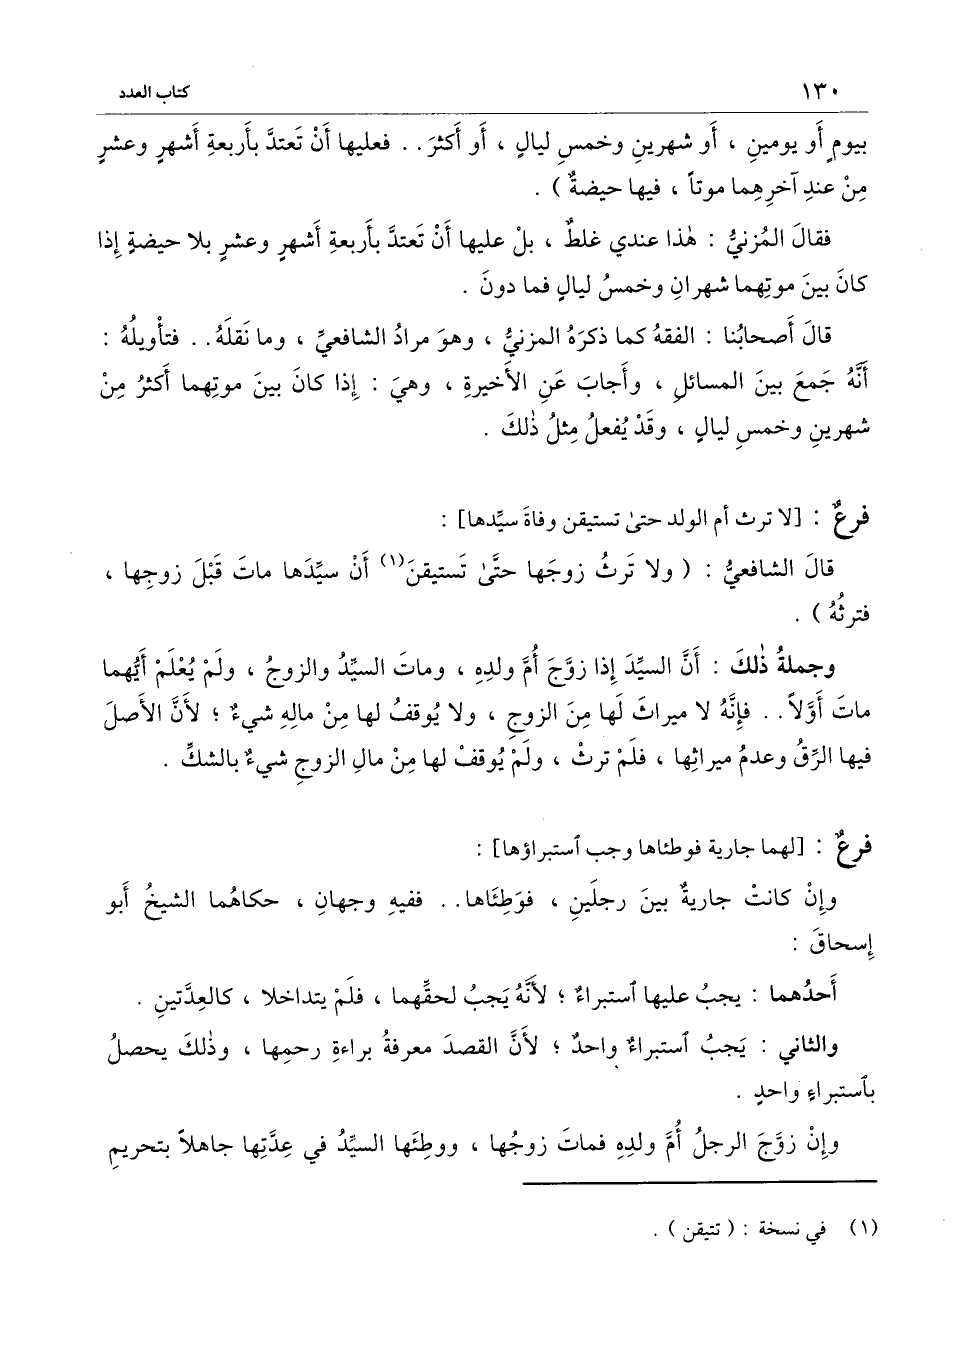 ١٣٠ كتاب العدد
بيومٍ أَو يومينِ ، أَو شهرينِ وخمسِ ليالٍ ، أَو أَكثرَ . . فعليها أَنْ تَعتدَّ بأَربعةِ أَشهرٍ وعشرٍ
مِنْ عندِ آخرِهِما موتاً ، فيها حيضةٌ ) .
فقالَ المُزنيُّ : هٰذا عندي غلطٌ ، بلْ عليها أَنْ تَعتدَّ بأَربعةِ أَشهرٍ وعشرٍ بلا حيضةٍ إِذا
كانَ بينَ موتِهما شهرانِ وخمسُ ليالٍ فما دونَ .
قالَ أَصحابُنا : الفقهُ كما ذكرَهُ المزنيُّ ، وهوَ مرادُ الشافعيِّ ، وما نَقلَهُ . . فتأْويلُهُ :
أَنَّهُ جَمعَ بينَ المسائلِ ، وأَجابَ عَنِ الأَخيرةِ ، وهيَ : إِذا كانَ بينَ موتِهما أَكثرُ مِنْ
شهرينِ وخمسِ ليالٍ ، وقَدْ يُفعلُ مِثلُ ذٰلكَ .
فرعٌ : [لا ترث أم الولد حتىٰ تستيقن وفاةَ سيِّدها] :
قالَ الشافعيُّ : ( ولا تَرثُ زوجَها حتَّىٰ تَستيقنَ(١) أَنْ سيِّدَها ماتَ قَبْلَ زوجِها ،
فترثُهُ ) .
وجملةُ ذٰلكَ : أَنَّ السيِّدَ إِذا زوَّجَ أُمَّ ولدِهِ ، وماتَ السيِّدُ والزوجُ ، ولَمْ يُعْلَمْ أَيُّهما
ماتَ أَوَّلاً . . فإِنَّهُ لا ميراثَ لَها مِنَ الزوجِ ، ولا يُوقفُ لها مِنْ مالِهِ شيءٌ ؛ لأَنَّ الأَصلَ
فيها الرِّقُّ وعدمُ ميراثِها ، فلَمْ ترثْ ، ولَمْ يُوقفْ لها مِنْ مالِ الزوجِ شيءٌ بالشكِّ .
فرعٌ : [لهما جارية فوطئاها وجب ٱستبراؤها] :
وإِنْ كانتْ جاريةٌ بينَ رجلَينِ ، فوَطِئَاها . . ففيهِ وجهانِ ، حكاهُما الشيخُ أَبو
إِسحاقَ :
أَحدُهما : يجبُ عليها ٱستبراءٌ ؛ لأَنَّهُ يَجبُ لحقِّهما ، فلَمْ يتداخلا ، كالعِدَّتينِ .
والثاني : يَجبُ ٱستبراءٌ واحدٌ ؛ لأَنَّ القصدَ معرفةُ براءةِ رحمِها ، وذٰلكَ يحصلُ
بٱستبراءٍ واحدٍ .
وإِنْ زوَّجَ الرجلُ أُمَّ ولدِهِ فماتَ زوجُها ، ووطِئَها السيِّدُ في عِدَّتِها جاهلاً بتحريمِ
(١) في نسخة : ( تتيقن ) .